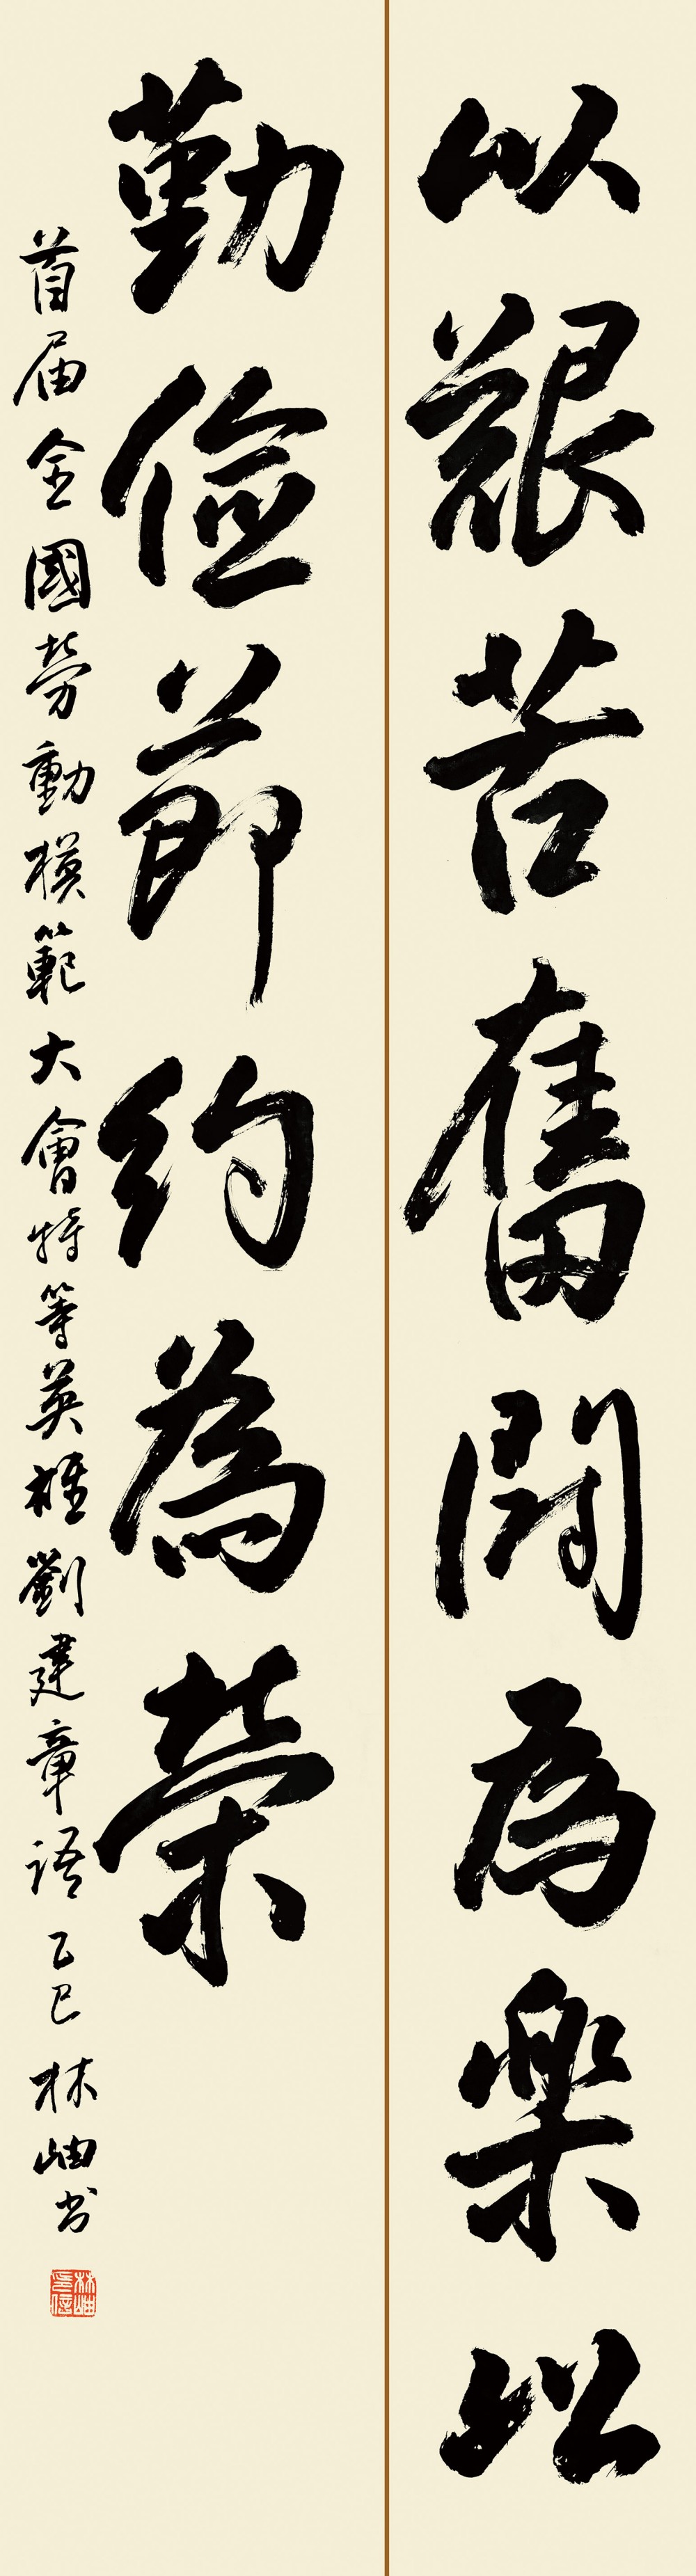 以艱苦奮鬥為樂以
勤儉節約為榮
首屆全國勞動模範大會特等英雄劉建章語乙巳林岫书
林岫
印信